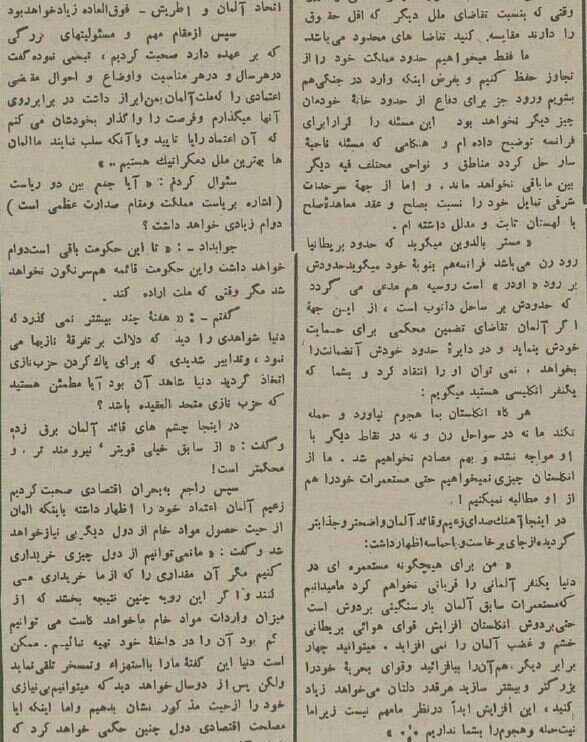 وقتی که بنسبت تقاضای ملل دیگر که اقل حقوق
را دارند مقایسه کنید تقاضا های محدود می‌باشد.
ما فقط میخواهیم حدود مملکت خود را از
تجاوز حفظ کنیم و بفرض اینکه وارد در جنگی‌هم
بشویم ورود جز برای دفاع از حدود خانهٔ خودمان
چیز دیگر نخواهد بود این مسئله را قرارابرای
فرانسه توضیح داده ام و هنکامی که مسئله ناحیهٔ
سار حل کردد مناطق و نواحی مختلف فیه دیگر
بین ماباقی نخواهد ماند . و اما از جهة سرحدات
شرقی تمایل خود را نسبت بصلح و عقد معاهدهٔ‌صلح
با لهستان ثابت و مدلل داشته ام .
« مستر بالدوین میگوید که حدود بریطانیا
رود رن می‌باشد فرانسه‌هم بنوبهٔ خود میگویدحدودش
بر رود « اودر » است روسیه هم مدعی می گردد
که حدودش بر ساحل دانوب است ، از این جهة
اگر آلمان تقاضای تضمین محکمی برای حمایت
خودش بنماید و در دایرهٔ حدود خودش آنضمانت‌را
بخواهد ، نمی توان او را انتقاد کرد و بشما که
یکنفر انکلیسی هستید میگویم :
هر گاه انکلستان بما هجوم نیاورد و حمله
نکند ما نه در سواحل رن و نه در نقاط دیگر با
او مواجه نشده و بهم مصادم نخواهیم شد . ما از
انکلستان چیزی نمیخواهیم حتی مستعمرات خودرا هم
از او مطالبه نمیکنیم !
در اینجا آهنك صدای زعیم وقائد آلمان واضحتر وجذابتر
گردیده ازجای برخاست و باحماسه اظهارداشت:
« من برای هیچگونه مستعمره ای در
دنیا یکنفر آلمانی را قربانی نخواهم کرد مامیدانیم
که‌مستعمرات سابق آلمان بارسنگینی بردوش است
حتی‌بردوش انکلستان افزایش قوای هوائی بریطانی
خشم و غضب آلمان را نمی افزاید . میتوانید چهار
برابر دیگر هم‌آن‌را بیافزائید وقوای بحریهٔ خودرا
بزرگتر وبیشتر سازید هرقدر دلتان می‌خواهد زیاد
کنید ، این افزایش ابداً درنظر مامهم نیست زیراما
نیت‌حمله وهجوم‌را بشما نداریم . »
اتحاد آلمان و اطریش - فوق‌العاده زیادخواهدبود
سپس ازمقام مهم و مسئولیتهای بزرگی
که بر عهده دارد صحبت کردیم ، تبسمی نموده‌گفت
درهرسال و درهر مناسبت واوضاع و احوال مقتضی
اعتمادی را که‌ملت‌آلمان بمن‌ابراز داشت در برابرروی
آنها میگذارم وفرصت را واگذار بخودشان می کنم
که آن اعتمادرایا تایید ویاآنکه سلب نمایند ماآلمان
ها بهترین ملل دمکراتیك هستیم .. »
سئوال کردم : « آیا جمع بین دو ریاست
( اشاره بریاست مملکت ومقام صدارت عظمی است )
دوام زیادی خواهد داشت ؟
جوابداد - : « تا این حکومت باقی است‌دوام
خواهد داشت واین حکومت قائمه هم‌سرنگون نخواهد
شد مگر وقتی که ملت اراده کند .
گفتم - : « هفتهٔ چند بیشتر نمی گذرد که
دنیا شواهدی را دید که دلالت بر تفرقهٔ نازیها می
نمود ، وتدابیر شدیدی که برای پاك‌کردن حزب‌نازی
اتخاذ گردید دنیا شاهد آن بود آیا مطمئن هستید
که حزب نازی متحد العقیده باشد ؟
در اینجا چشم های قائد آلمان برق زده
وگفت : « از سابق خیلی قویتر ، نیرومند تر ، و
محکمتر است !
سپس راجع به‌بحران اقتصادی صحبت کردیم
زعیم آلمان اعتماد خود را اظهارداشته باینکه المان
از حیث حصول مواد خام از دول دیگر بی نیازخواهد
شد وگفت : « مانمی‌توانیم از دول چیزی خریداری
کنیم مگر آن مقداری را که ازما خریداری می
کنند واگر این رویه چنین نتیجه بخشد که از
میزان واردات مواد خام ماخواهد کاست می توانیم
بود آن را در داخلهٔ خود تهیه نمائیم . ممکن
است دنیا این گفتهٔ مارا بااستهزاء وتمسخر تلقی‌نماید
ولکن پس از دوسال خواهد دید که میتوانیم‌بی‌نیازی
خود را ازحیث مذکور نشان بدهیم واما اینکه ایا
مصلحت اقتصادی دول چنین حکمی خواهد کرد که